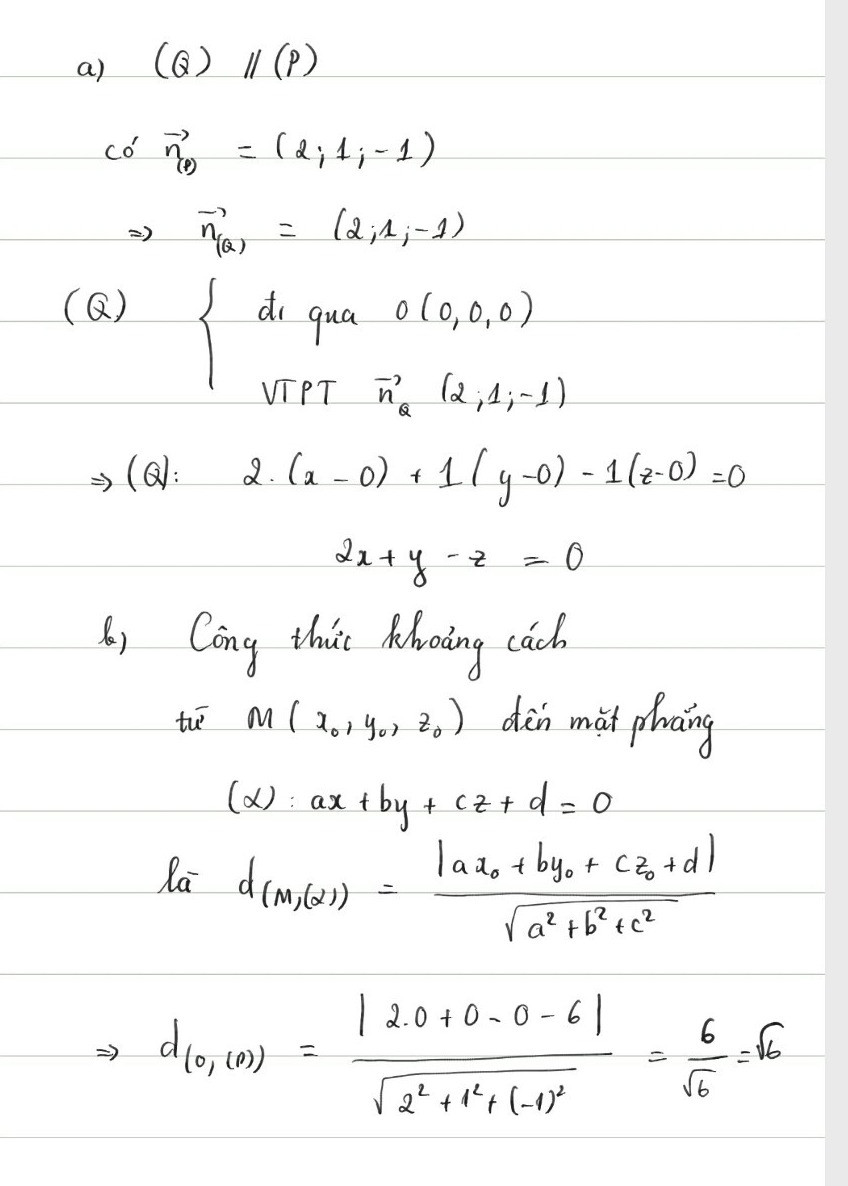 a) (Q) // (P)
có n⃗(P) = (2;1;-1)
=> n⃗(Q) = (2;1;-1)
(Q) { đi qua O(0,0,0)
VTPT n⃗Q (2;1;-1)
=> (Q): 2.(x - 0) + 1(y-0) - 1(z-0) = 0
2x + y - z = 0
b) Công thức khoảng cách
từ M(x₀, y₀, z₀) đến mặt phẳng
(α): ax + by + cz + d = 0
là d(M,(α)) = |ax₀ + by₀ + cz₀ + d| / √(a² + b² + c²)
=> d(O,(P)) = |2.0 + 0 - 0 - 6| / √(2² + 1² + (-1)²) = 6/√6 = √6